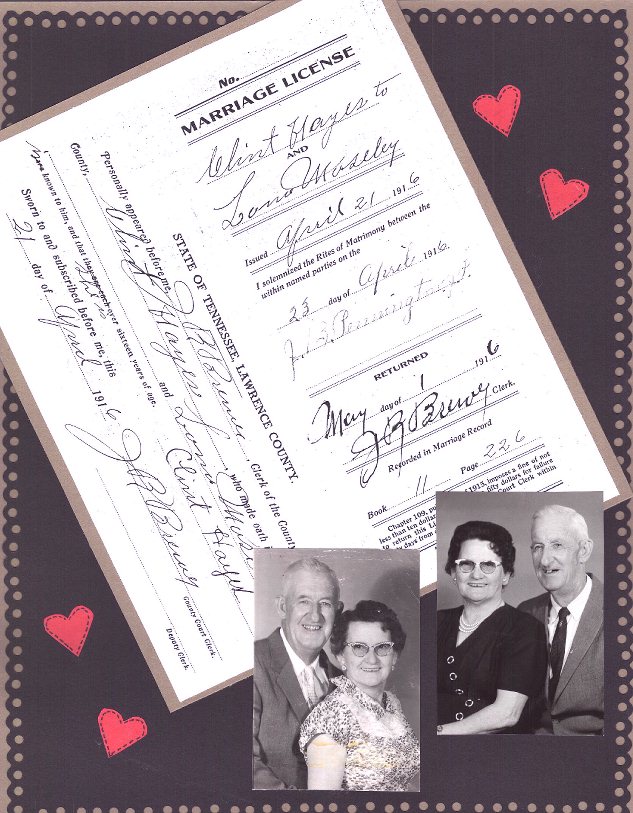 No.
MARRIAGE LICENSE
Clint Hayes to
AND
Lona Moseley
Issued April 21 1916
I solemnized the Rites of Matrimony between the
within named parties on the
23 day of April 1916.
J. B. Pennington
RETURNED
May day of 1 1916
J R Brewer Clerk.
Recorded in Marriage Record
Book 11 Page 226
Chapter 109,
of 1913, imposes a fine of not
less than ten dollars
fifty dollars for failure
to return this
Court Clerk within
days from
STATE OF TENNESSEE, LAWRENCE COUNTY.
Personally appeared before me, J R Brewer Clerk of the County
County, Clint Hayes and who made oath
Clint Hayes
known to him, and that they are each over sixteen years of age.
Sworn to and subscribed before me, this
21 day of April 1916
J R Brewer County Court Clerk.
Deputy Clerk.